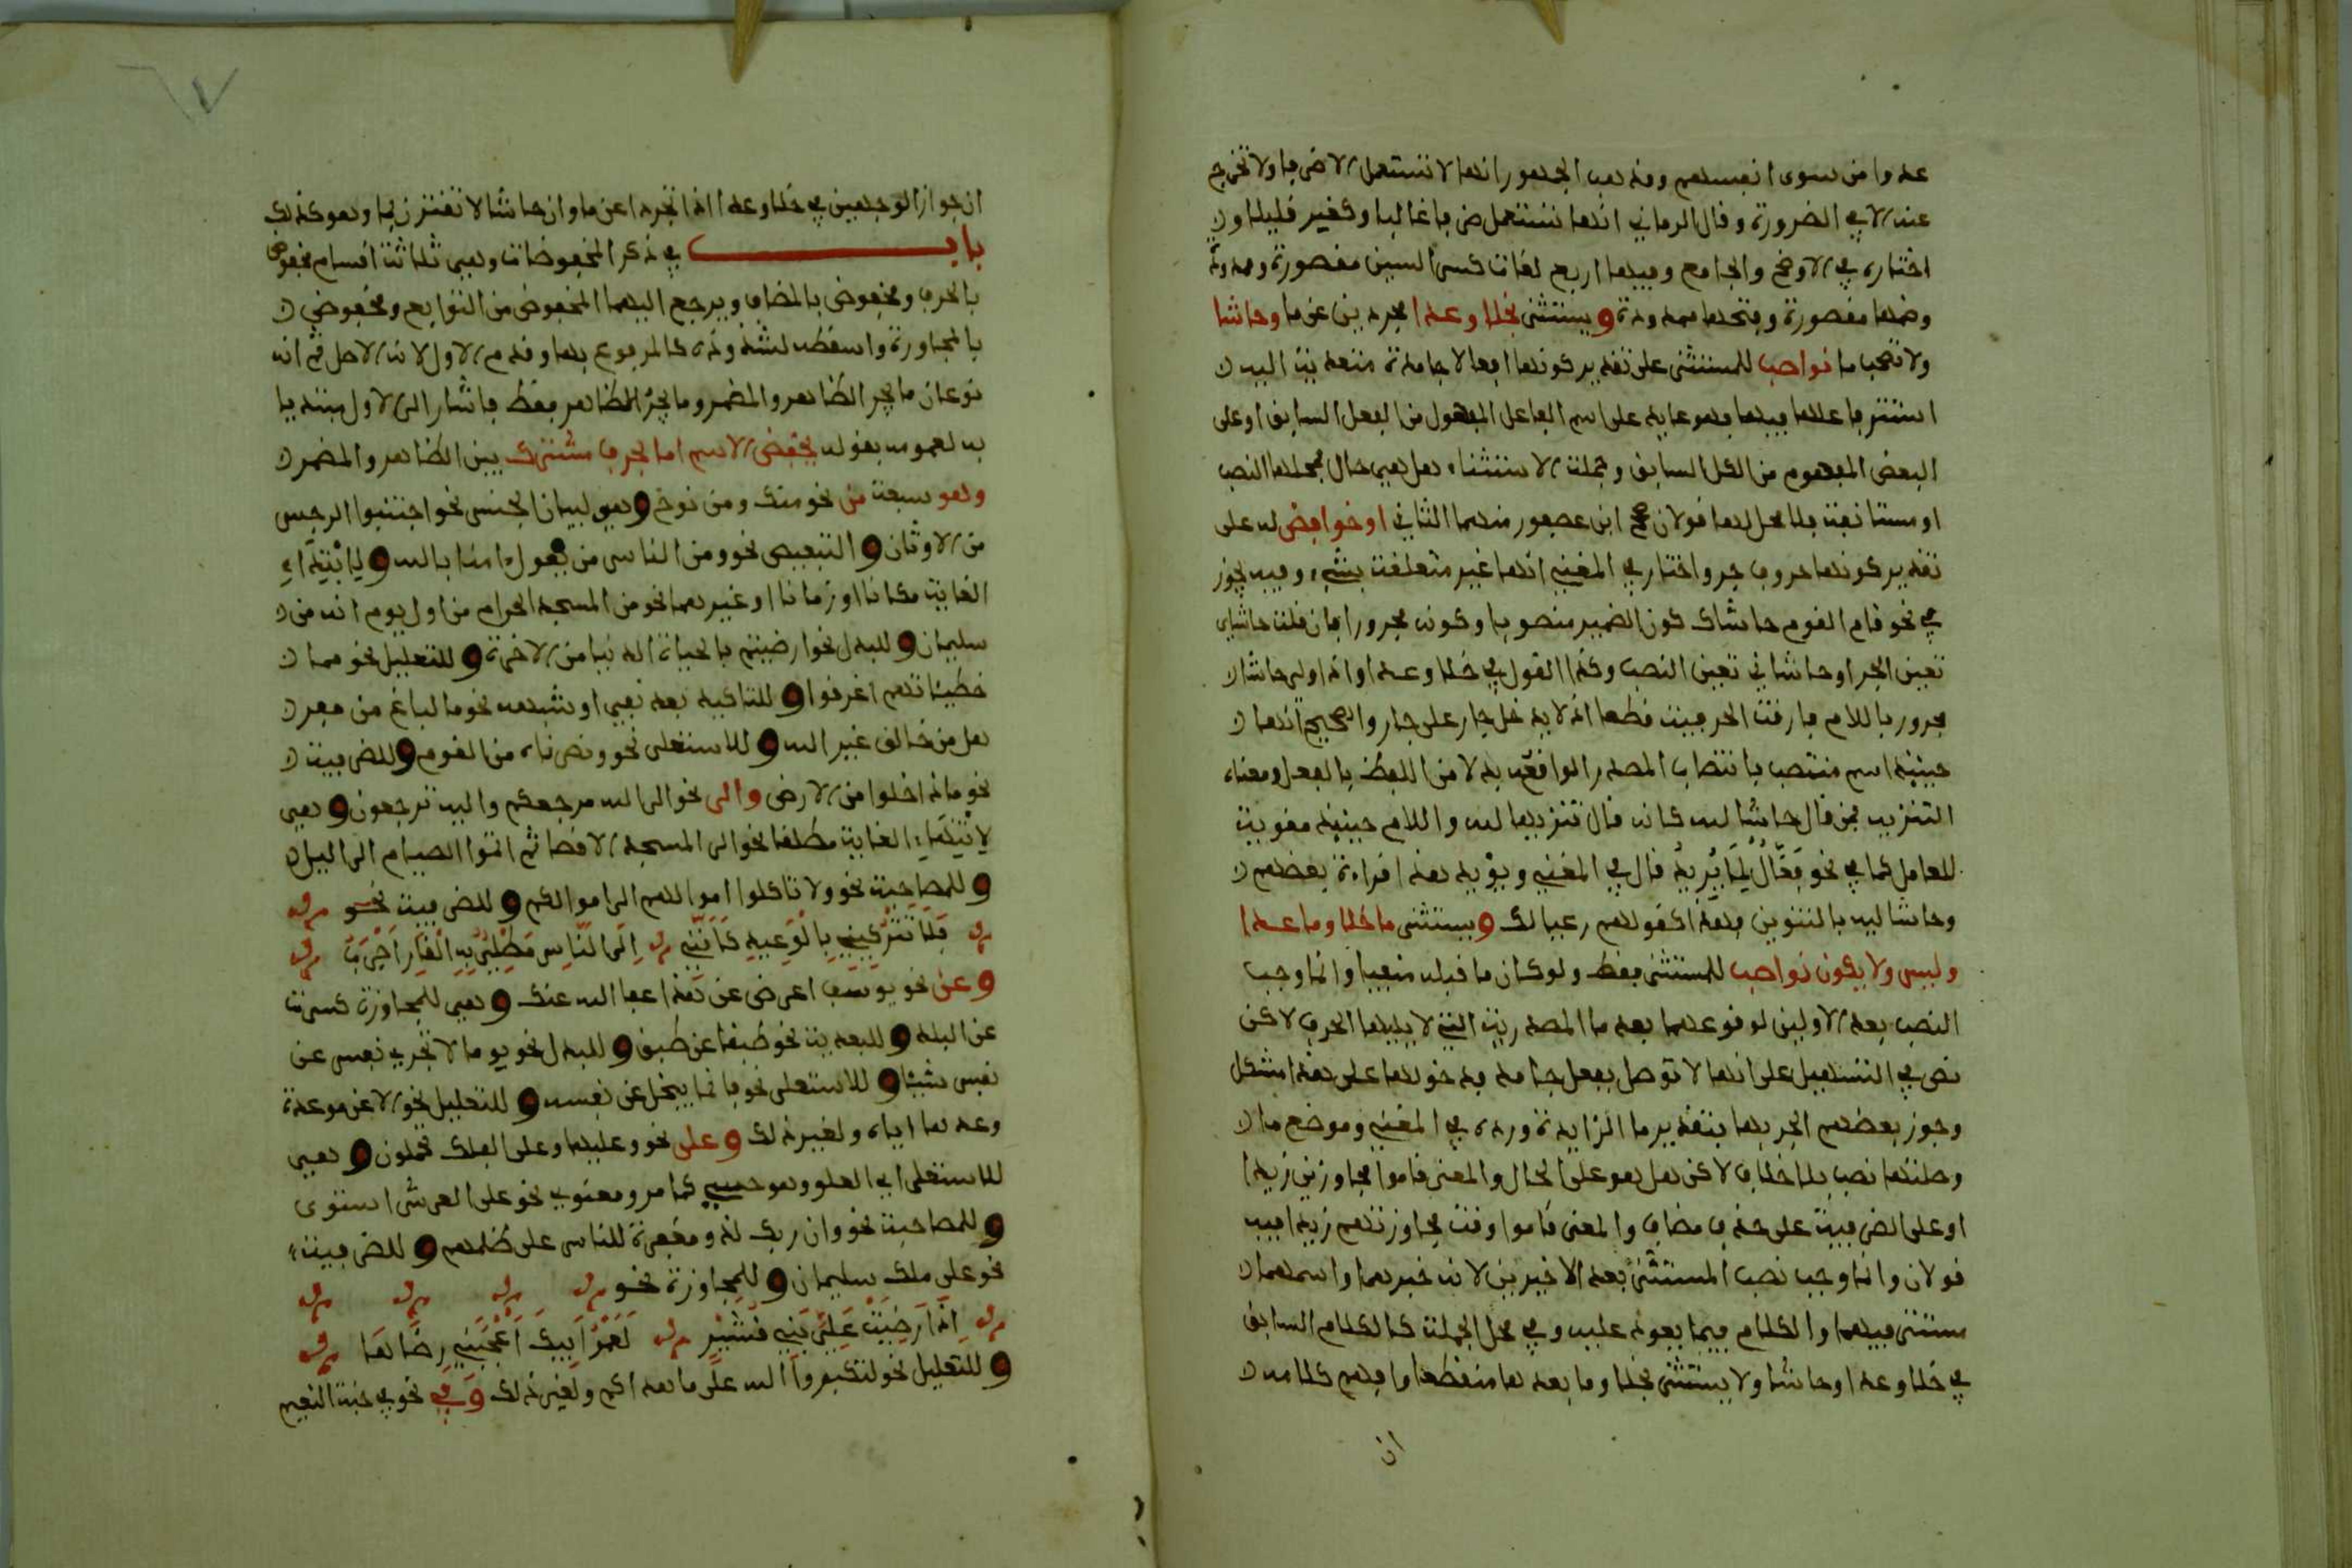 عدوا من سوى انفسهم ومذهب الجمهور انها لا تستعمل الا ظرفا ولا تخرج
عنه الا في الضرورة وقال الرماني انها تستعمل ظرفا غالبا وكغير قليلا و
اختاره في الاوضح والجامع وفيها اربع لغات كسر السين مقصورة وممدودة
وضمها مقصورة وفتحها ممدودة ويستثنى بخلا وعدا مجردين عن ما وحاشا
ولا تصحب ما نواصب للمستثنى على تقدير كونها افعالا جامدة متعدية اليه
استتر فاعلها فيها وهو عايد على اسم الفاعل المفهوم من الفعل السابق او على
البعض المفهوم من الكل السابق وجملة الاستثناء هل هي حال فمحلها النصب
او مستانفة فلا محل لها قولان صحح ابن عصفور منهما الثاني او خوافض له على
تقدير كونها حروف جر واختار في المغني انها غير متعلقة بشيء وفيه يجوز
في نحو قام القوم حاشاك كون الضمير منصوبا وكونه مجرورا فان قلت حاشاي
تعين الجر او حاشاني تعين النصب وكذا القول في خلا وعدا واذا ولي حاشا
مجرور باللام فارقت الحرفية قطعا اذ لا يدخل جار على جار والصحيح انها
حينئذ اسم منتصب بانتصاب المصدر الواقع بدلا من اللفظ بالفعل ومعناه
التنزيه فمن قال حاشا لله كانه قال تنزيها لله واللام حينئذ مقوية
للعامل كما في نحو فَعَّالٌ لِمَا يُرِيدُ قال في المغني ويؤيد هذا قراءة بعضهم
وحاشا لله بالتنوين فهذا كقولهم رعيا لك ويستثنى ما خلا وما عدا
وليس ولا يكون نواصب للمستثنى فقط ولو كان ما قبله منفيا وانما وجب
النصب بعد الاولين لوقوعهما بعد ما المصدرية التي لا يليها الحرف لاكن
نص في التسهيل على انها لا توصل بفعل جامد فدخولها على هذا مشكل
وجوز بعضهم الجر بها بتقدير ما الزايدة ورده في المغني وموضع ما
وصلتها نصب بلا خلاف لاكن هل هو على الحال والمعنى قاموا مجاوزين زيدا
او على الظرفية على حذف مضاف والمعنى قاموا وقت مجاوزتهم زيدا فيه
قولان وانما وجب نصب المستثنى بعد الاخيرين لانه خبرهما واسمهما
مستتر فيهما والكلام فيما يعود عليه وفي محل الجملة كالكلام السابق
في خلا وعدا وحاشا ولا يستثنى بخلا وما بعدها منقطعا وافهم كلامه
ان
ان جواز الوجهين في خلا وعدا اذا تجردا عن ما وان حاشا لا تقترن بها وهو كذلك
باب في ذكر المخفوضات وهي ثلاثة اقسام مخفوض
بالحرف ومخفوض بالمضاف ويرجع اليهما المخفوض من التوابع ومخفوض
بالمجاورة واسقطه لشذوذه كالمرفوع بها وقدم الاول لانه الاصل ثم انه
نوعان ما يجر الظاهر والمضمر وما يجر الظاهر فقط فاشار الى الاول مبتديا
به لعمومه بقوله يخفض الاسم اما بحرف مشترك بين الظاهر والمضمر
وهو سبعة من نحو منك ومن نوح وهي لبيان الجنس نحو اجتنبوا الرجس
من الاوثان والتبعيض نحو ومن الناس من يقول امنا بالله ولِابْتِدَاءِ
الغاية مكانا او زمانا او غيرهما نحو من المسجد الحرام من اول يوم انه من
سليمان وللبدل نحو ارضيتم بالحياة الدنيا من الاخرة وللتعليل نحو مما
خطيئاتهم اغرقوا وللتاكيد بعد نفي او شبهه نحو ما لباغ من مفر
هل من خالق غير الله وللاستعلى نحو ونصرناه من القوم وللظرفية
نحو ماذا خلقوا من الارض والى نحو الى الله مرجعكم واليه ترجعون وهي
لِانْتِهَاءِ الغاية مطلقا نحو الى المسجد الاقصا ثم اتموا الصيام الى اليل
وللمصاحبة نحو ولا تاكلوا اموالهم الى اموالكم وللظرفية نحو
فَلَا تَتْرُكَنِّي بِالْوَعِيدِ كَأَنَّنِي إِلَى النَّاسِ مَطْلِيٌّ بِهِ الْقَارُ أَجْرَبُ
وعن نحو يوسف اعرض عن هذا عفا الله عنك وهي للمجاوزة كسرت
عن البلد وللبعدية نحو طبقا عن طبق وللبدل نحو يوما لا تجزي نفس عن
نفس شيئا وللاستعلى نحو فانما يبخل عن نفسه وللتعليل نحو الا عن موعدة
وعدها اياه ولغير ذلك وعلى نحو وعليها وعلى الفلك تحملون وهي
للاستعلى اي العلو وهو حسي كما مر ومعنوي نحو على العرش استوى
وللمصاحبة نحو وان ربك لذو مغفرة للناس على ظلمهم وللظرفية
نحو على ملك سليمان وللمجاوزة نحو
إِذَا رَضِيَتْ عَلَيَّ بَنُو قُشَيْرٍ لَعَمْرُ أَبِيكَ أَعْجَبَنِي رِضَاهَا
وللتعليل نحو لتكبروا الله على ما هداكم ولغير ذلك وفي نحو في جنة النعيم